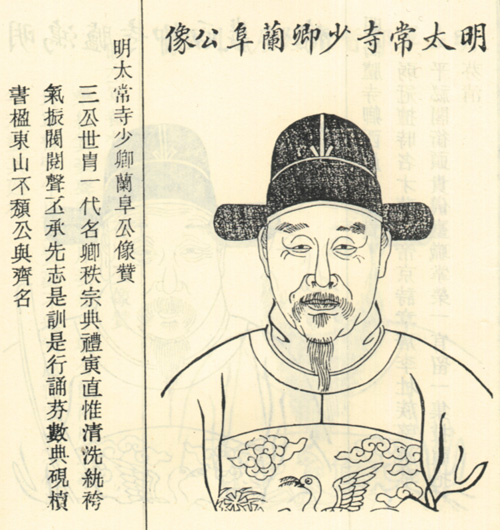 明太常寺少卿蘭阜公像
明太常寺少卿蘭阜公像贊
三公世胄一代名卿秩宗典禮寅直惟清洗紈袴
氣振閥閱聲丕承先志是訓是行誦芬數典硯櫝
書楹東山不頹公與齊名